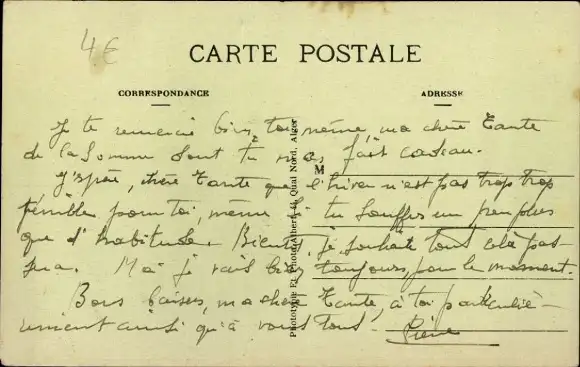 4€
CARTE POSTALE
CORRESPONDANCE
ADRESSE
Je te remercie bien, toi même, ma chère Tante
de la somme dont tu m'as fait cadeau.
J'espère, chère Tante que l'hiver n'est pas trop trop
pénible pour toi, même si tu souffres un peu plus
que d'habitude. Bientôt, je souhaite tout cela pas-
sera. Moi je vais bien toujours, pour le moment.
Bons baisers, ma chère Tante, à toi particuliè-
rement ainsi qu'à vous tous.
Pierre
M
Phototypie Et Photo Albert, 44 Quai Nord, Alger